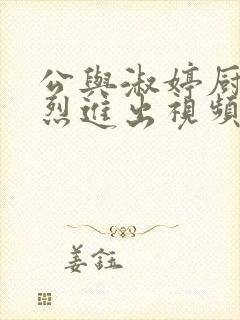 公與淑婷厨
烈進出視頻
姜鈺